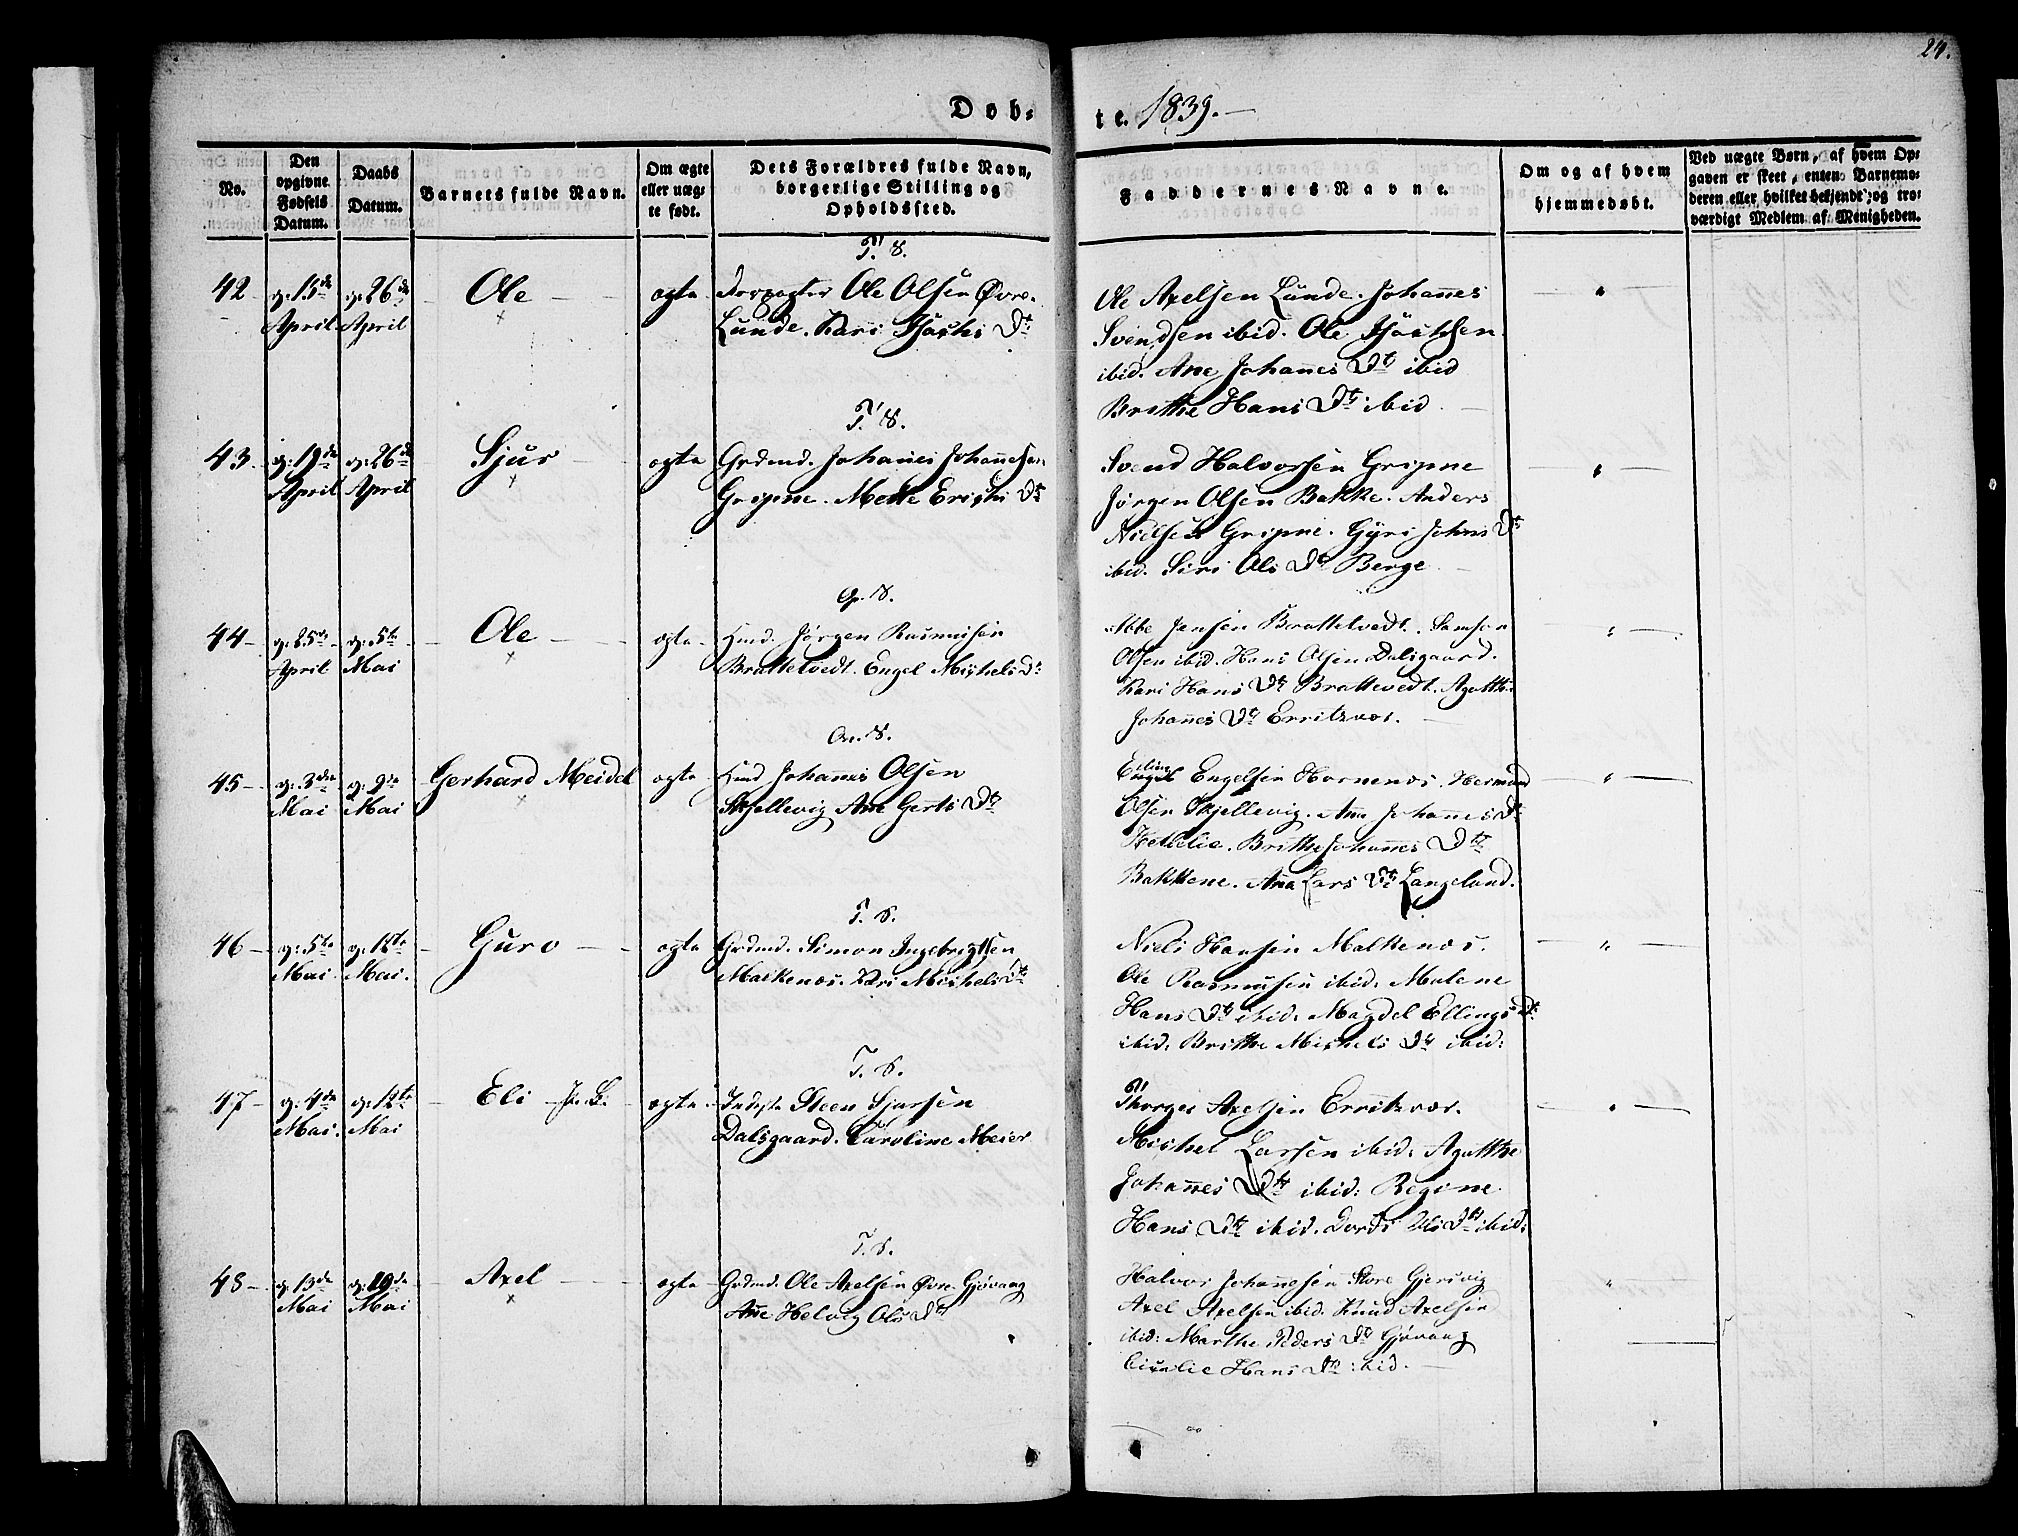 24.
Døb-
te. 1839.
No.
Den opgivne Fødsels Datum.
Daabs Datum.
Barnets fulde Navn.
Om ægte eller uægte født.
Dets Forældres fulde Navn, borgerlige Stilling og Opholdssted.
Faddernes Navne.
Om og af hvem hjemmedøbt.
Ved uægte Børn, af hvem Opgaven er skeet, enten Barnemoderen eller hvilket bekjendt og troværdigt Medlem af Menigheden.
T. S.
42 d: 15de April d: 26de April Ole ægte Forpagter Ole Olsen Øvre
Lunde. Kari Dt:
Ole Axelsen Lunde. Johannes
Svendsen ibid. Ole
ibid. Ane Johannes Dt: ibid
Brithe Hans Dt: ibid.
T. S.
43. d: 19de April d: 26de April Sjur ægte Grdmd. Johannes Johannesen
Gripne. Mette Erichs Dt:
Svend Halvorsen Gripne
Jørgen Olsen Bakke. Anders
Nielsen Gripne. Gyri Johns Dt:
ibid. Siri Ols Dt: Berge
S.
44 d: 25de April d: 5te Mai Ole ægte Jørgen Rasmusen
Brattetvedt. Engel Michels Dt:
Ebbe Jansen Brattetvedt. Samson
Olsen ibid. Hans Olsen Dalsgaard.
Kari Hans Dt: Brattevedt. Agatthe
Johannes Dt: Erritsvær.
S.
45 d: 3die Mai d: 9de Mai Gerhard Meidel ægte Johannes Olsen
Skjellevig Ane Gerts Dt:
Engelsen Hornenæs. Hermand
Olsen Skjellevig. Ane Johannes Dt:
Hellelie. Brithe Johannes Dt:
Bakkene. Ana Lars Dt: Langeland.
T. S.
46 d: 5te Mai d: 12te Mai. Guro ægte Grdmd. Simon Ingebrigtsen
Malkenæs. Kari Michels Dt:
Niels Hansen Malkenæs.
Ole Rasmusen ibid: Malene
Hans Dt: ibid: Magdel Ellings Dt:
ibid: Brithe Michels Dt: ibid:
T. S.
47 d: 4de Mai. d: 12te Mai Eli ægte Inderste Steen Sjursen
Dalsgaard. Caroline Meier
Thorger Axelsen Erritsvær.
Michel Larsen ibid: Agatthe
Johannes Dt: ibid: Regine
Hans Dt: ibid. Dorthe Ols Dt: ibid:
T. S.
48 d: 13de Mai d: 19de Mai Axel ægte Grdmd. Ole Axelsen Øvre Gjøvaag
Ane Helvig Ols Dt:
Halvor Johannesen Store Gjersvig
Axel Axelsen ibid. Knud Axelsen
ibid: Marthe Peders Dt: Gjøvaag
Hans Dt: ibid.